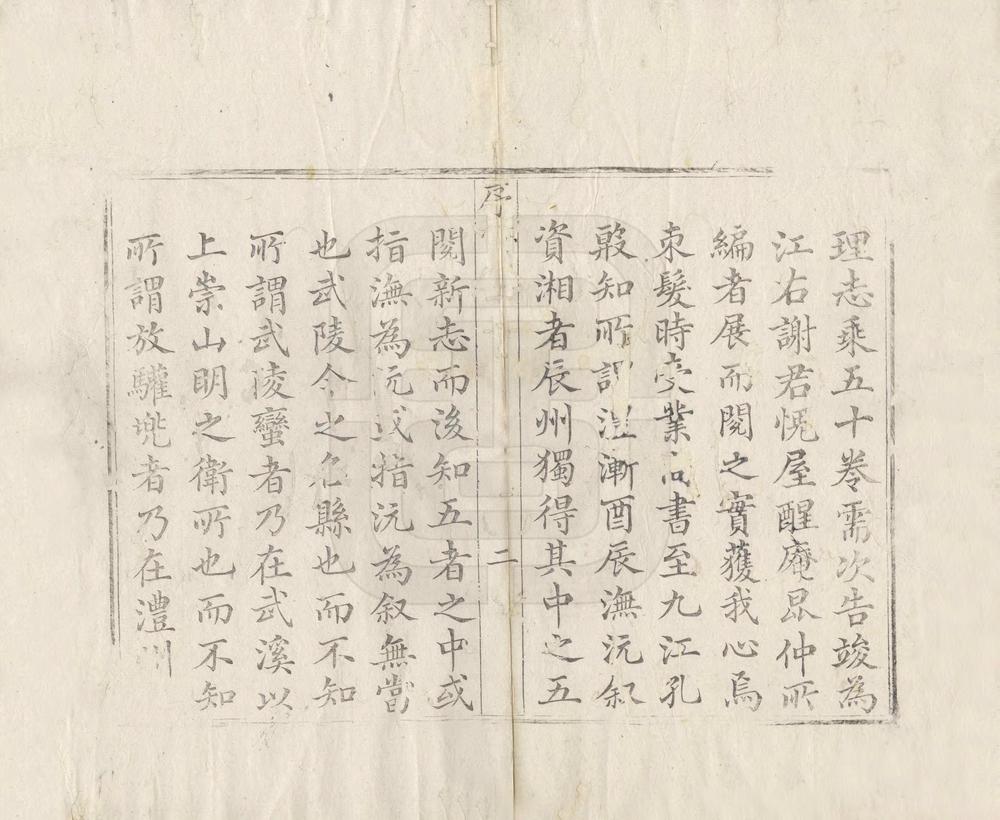 理志乘五十卷需次告竣為
江右謝君怳屋醒庵昆仲所
編者展而閱之實獲我心焉
束髮時受業尚書至九江孔
殷知所謂澧漸酉辰潕沅叙
資湘者辰州獨得其中之五
序
二
閱新志而後知五者之中或
指潕為沅或指沅為叙無當
也武陵今之名縣也而不知
所謂武淩蠻者乃在武溪以
上崇山明之衛所也而不知
所謂放驩兜者乃在澧州